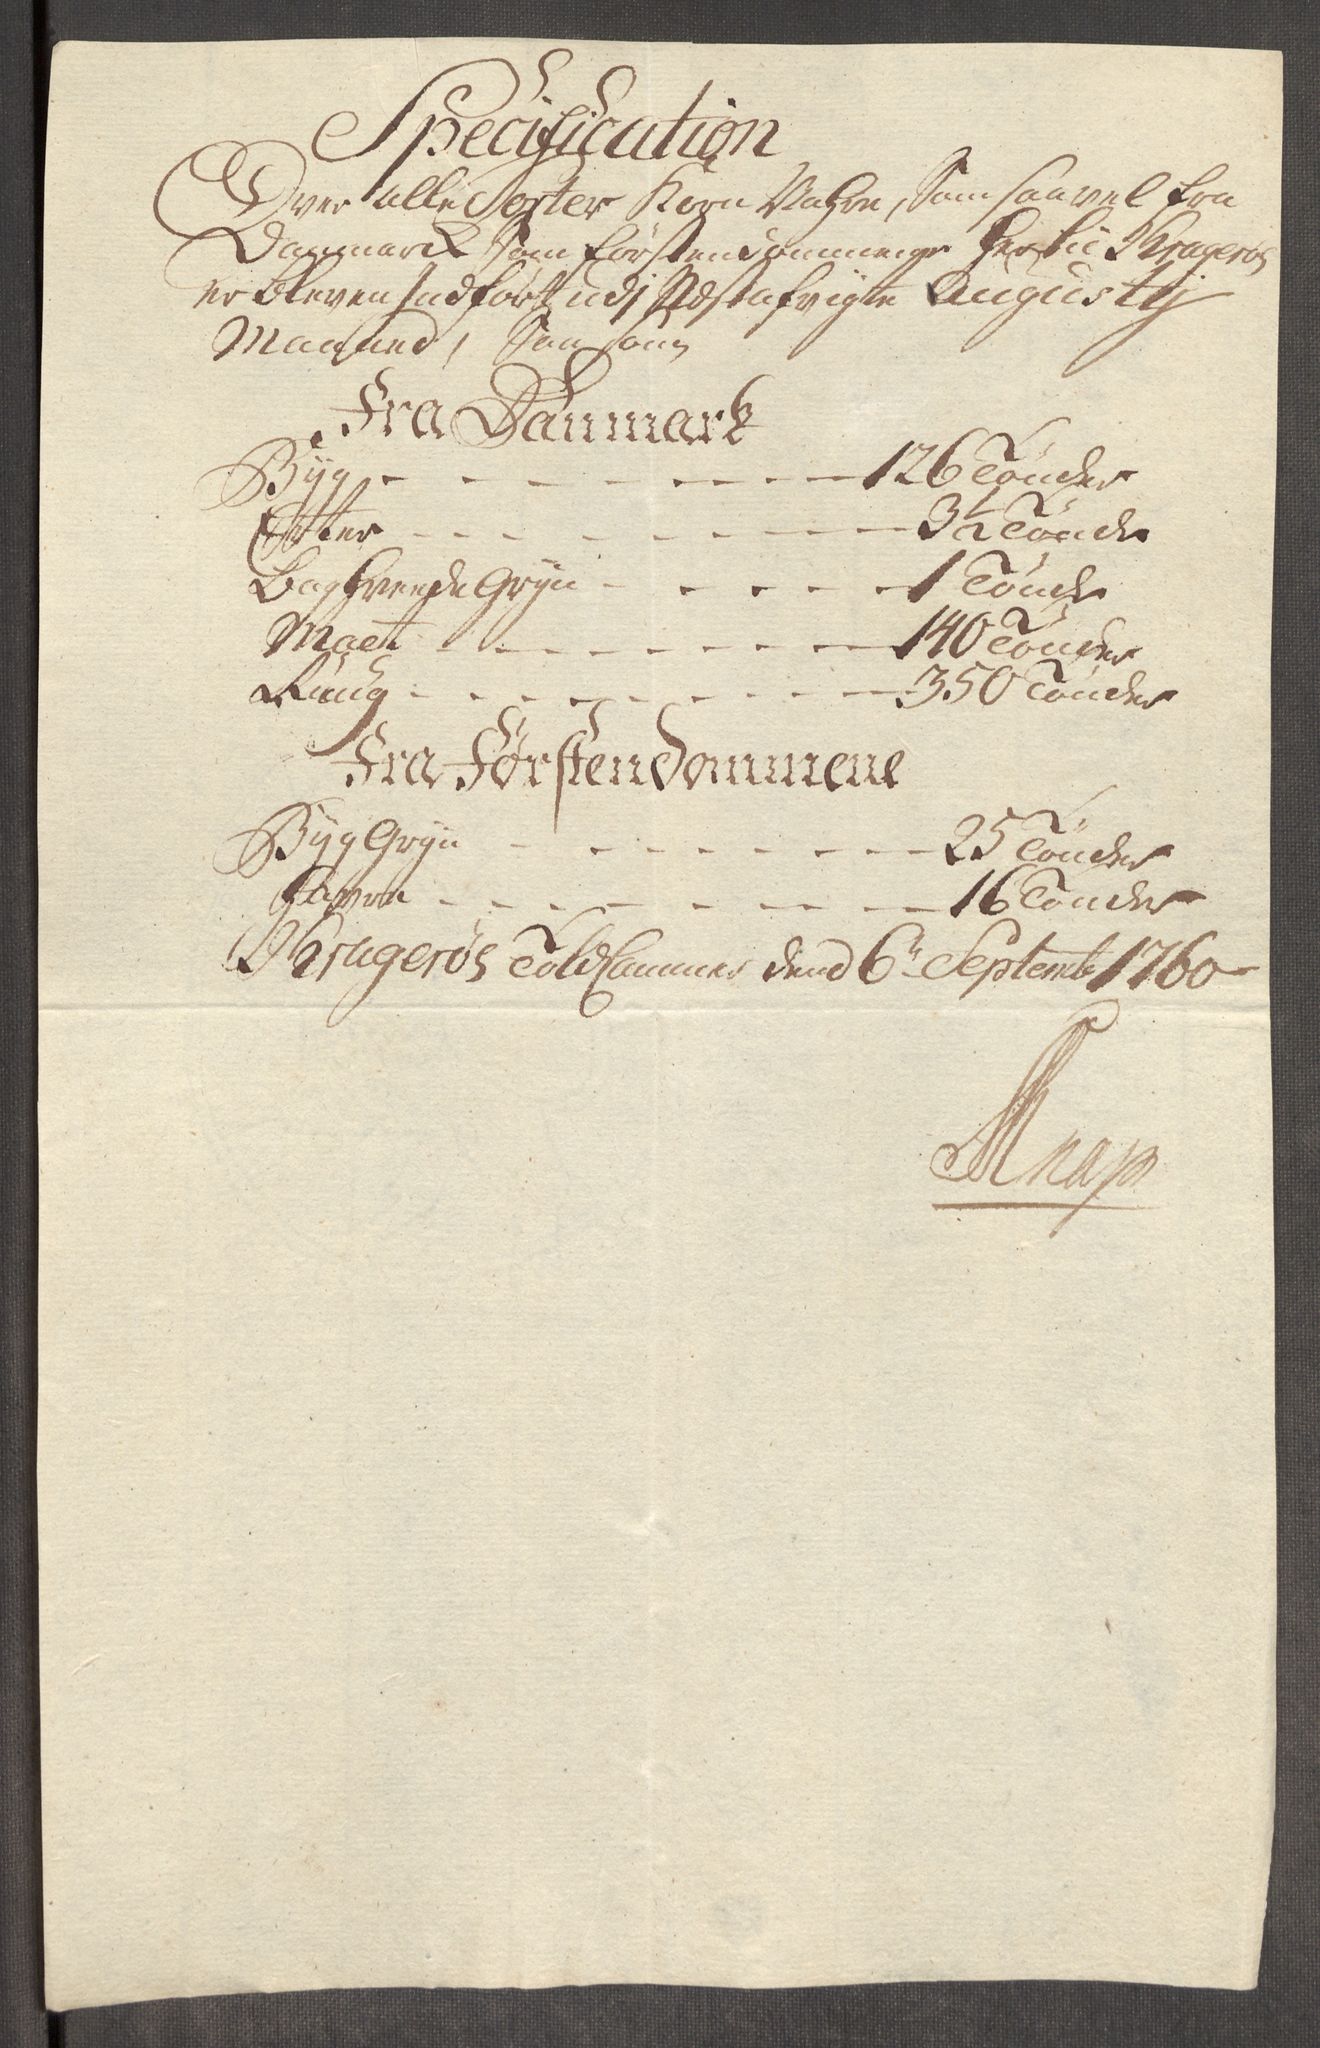 Specification
Over alle Sorter Korn Vahre, Som saavel fra
Danmarck som förstendommene her til Kragerøe
er bleven Indført udj Nest afvigte Augustij
Maaned, Saasom
Fra Danmark
Byg - - - - - - - 126 Tönder
Erter - - - - - - - 3½ Tönde
Boghvede Gryn - - - - - 1 Tönde
Malt - - - - - - - 140 Tönder
Rüug - - - - - - - 350 Tönder
Fra Førstendommene
Byg Gryn - - - - - - 25 Tönder
Havre - - - - - - - 16 Tönder
Kragerøe Told Cammer dend 6t Septemb 1760
Knap